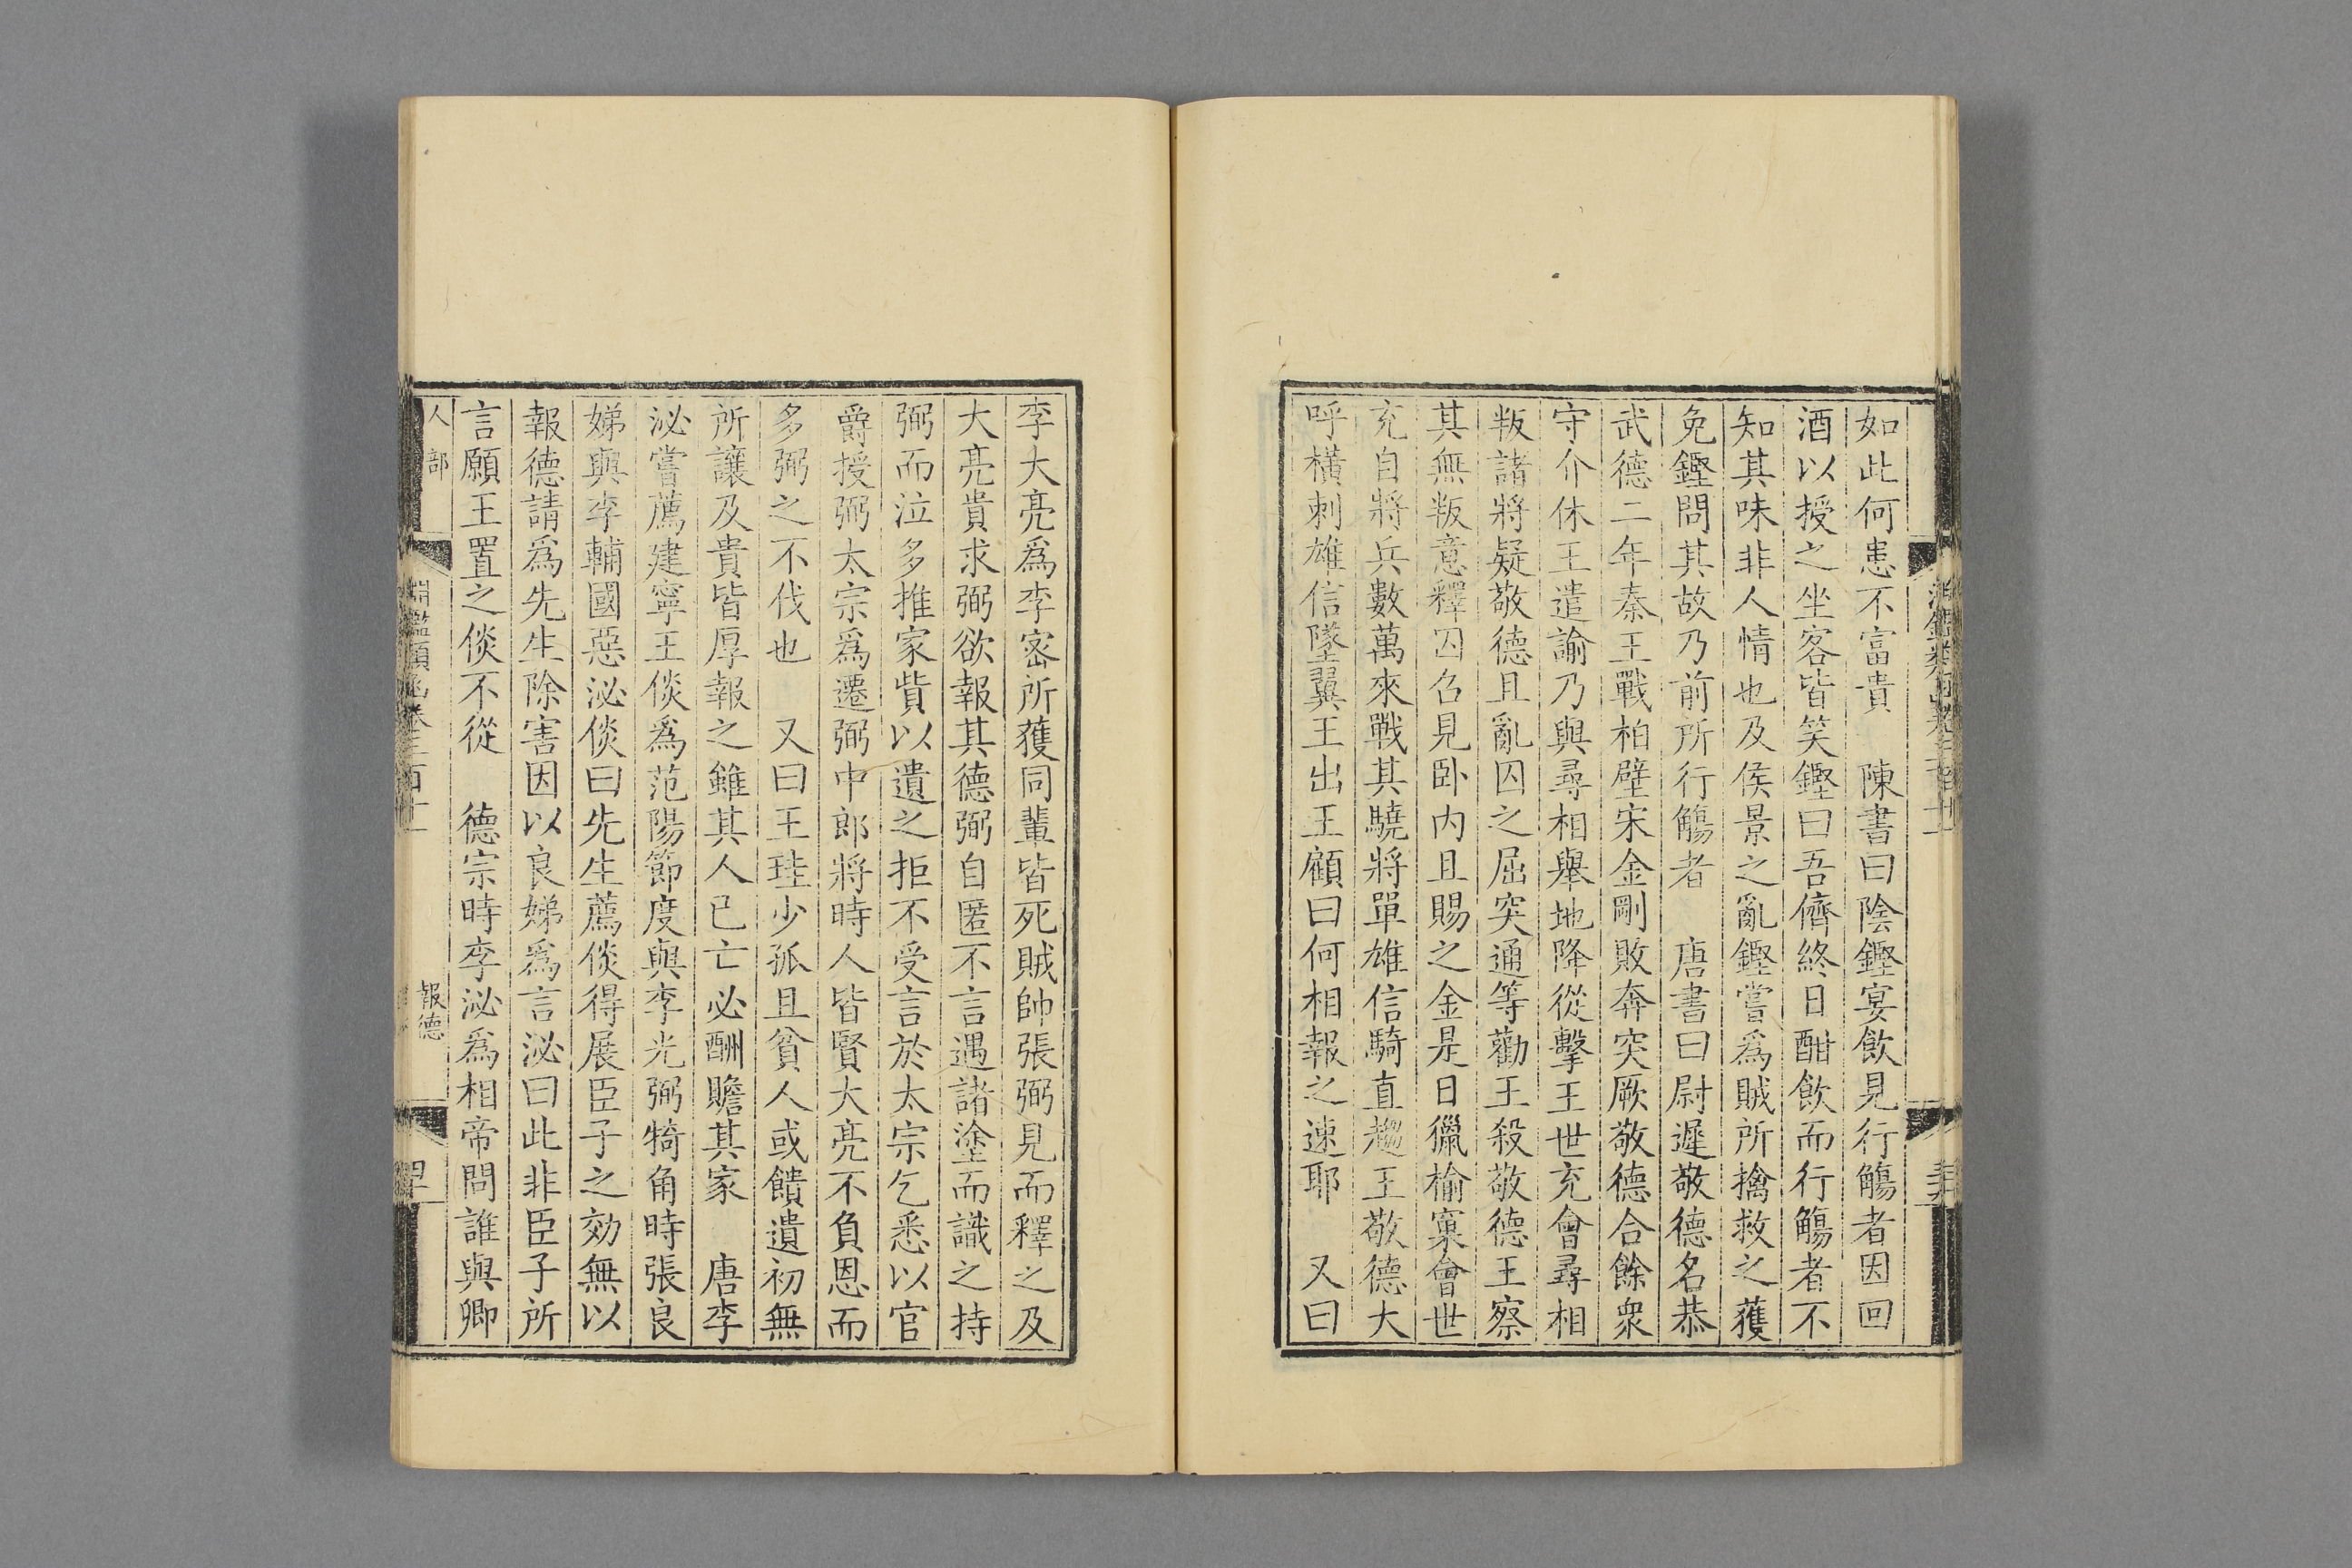 如此何患不富貴　陳書曰陰鏗宴飲見行觴者因回
酒以授之坐客皆笑鏗曰吾儕終日酣飲而行觴者不
知其味非人情也及侯景之亂鏗嘗爲賊所擒救之獲
免鏗問其故乃前所行觴者　唐書曰尉遲敬德名恭
武德二年秦王戰柏壁宋金剛敗奔突厥敬德合餘衆
守介休王遣諭乃與尋相舉地降從擊王世充會尋相
叛諸將疑敬德且亂囚之屈突通等勸王殺敬德王察
其無叛意釋囚召見卧内且賜之金是日獵榆窠會世
充自將兵數萬來戰其驍將單雄信騎直趨王敬德大
呼橫刺雄信墜翼王出王顧曰何相報之速耶　又曰
李大亮爲李密所獲同輩皆死賊帥張弼見而釋之及
大亮貴求弼欲報其德弼自匿不言遇諸塗而識之持
弼而泣多推家貲以遺之拒不受言於太宗乞悉以官
爵授弼太宗爲遷弼中郎將時人皆賢大亮不負恩而
多弼之不伐也　又曰王珪少孤且貧人或饋遺初無
所讓及貴皆厚報之雖其人已亡必酬贍其家　唐李
泌嘗薦建寧王倓爲范陽節度與李光弼犄角時張良
娣與李輔國惡泌倓曰先生薦倓得展臣子之効無以
報德請爲先生除害因以良娣爲言泌曰此非臣子所
言願王置之倓不從　德宗時李泌爲相帝問誰與卿
人部
淵鑑類函卷三百十一
報德